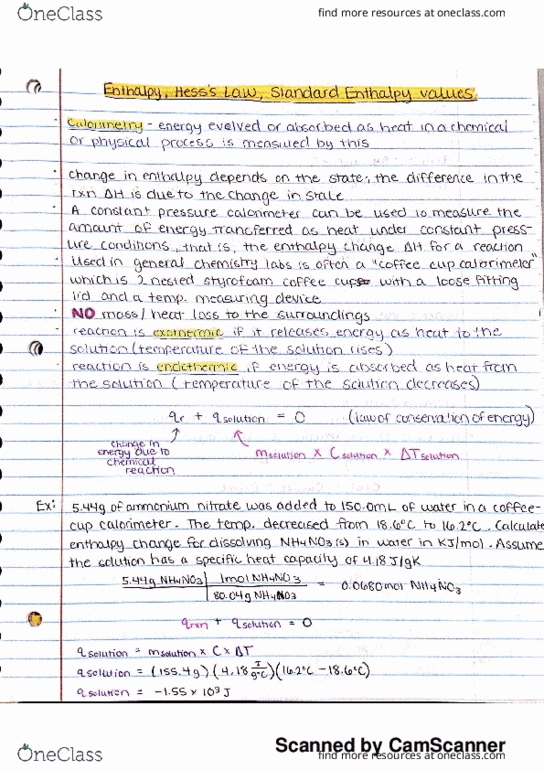 OneClass
find more resources at oneclass.com
Enthalpy, Hess's Law, Standard Enthalpy values
Calorimetry - energy evolved or absorbed as heat in a chemical
or physical process is measured by this
change in enthalpy depends on the state, the difference in the
rxn ΔH is due to the change in state
A constant pressure calorimeter can be used to measure the
amount of energy transferred as heat under constant press-
ure conditions, that is, the enthalpy change ΔH for a reaction
Used in general chemistry labs is often a "coffee cup calorimeter"
which is 2 nested styrofoam coffee cups with a loose fitting
lid and a temp. measuring device
NO mass/heat loss to the surroundings
reaction is exothermic if it releases energy as heat to the
solution (temperature of the solution rises)
reaction is endothermic if energy is absorbed as heat from
the solution (temperature of the solution decreases)
qr + qsolution = 0 (law of conservation of energy)
change in
energy due to
chemical
reaction
msolution x Csolution x ΔTsolution
Ex: 5.44g of ammonium nitrate was added to 150.0mL of water in a coffee-
cup calorimeter. The temp. decreased from 18.6°C to 16.2°C. Calculate
enthalpy change for dissolving NH4NO3(s) in water in KJ/mol. Assume
the solution has a specific heat capacity of 4.18 J/gK
5.44g NH4NO3 | 1mol NH4NO3 = 0.0680mol NH4NO3
80.04g NH4NO3
qrxn + qsolution = 0
qsolution = msolution x C x ΔT
qsolution = (155.4g)(4.18 J/g·°C)(16.2°C - 18.6°C)
qsolution = -1.55 x 10³ J
Scanned by CamScanner
OneClass
find more resources at oneclass.com